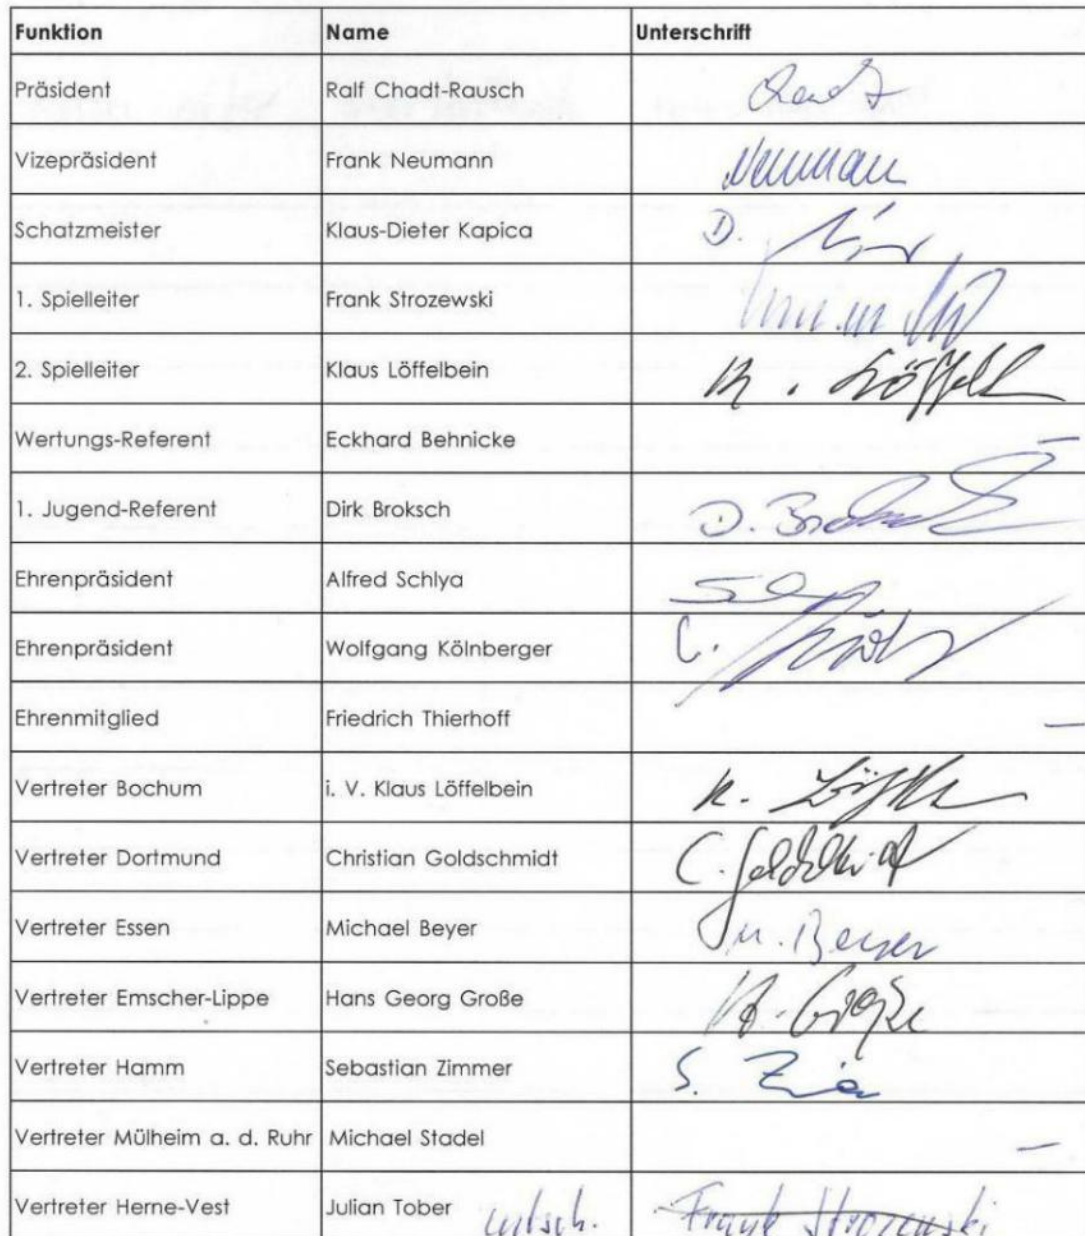 Funktion Name Unterschrift
Präsident Ralf Chadt-Rausch
Vizepräsident Frank Neumann Neumann
Schatzmeister Klaus-Dieter Kapica D.
1. Spielleiter Frank Strozewski
2. Spielleiter Klaus Löffelbein K. Löffelb
Wertungs-Referent Eckhard Behnicke —
1. Jugend-Referent Dirk Broksch D. Broksch
Ehrenpräsident Alfred Schlya
Ehrenpräsident Wolfgang Kölnberger
Ehrenmitglied Friedrich Thierhoff —
Vertreter Bochum i. V. Klaus Löffelbein K.
Vertreter Dortmund Christian Goldschmidt C. Goldschmidt
Vertreter Essen Michael Beyer M. Beyer
Vertreter Emscher-Lippe Hans Georg Große H. Große
Vertreter Hamm Sebastian Zimmer S.
Vertreter Mülheim a. d. Ruhr Michael Stadel —
Vertreter Herne-Vest Julian Tober entsch. Frank Strozewski